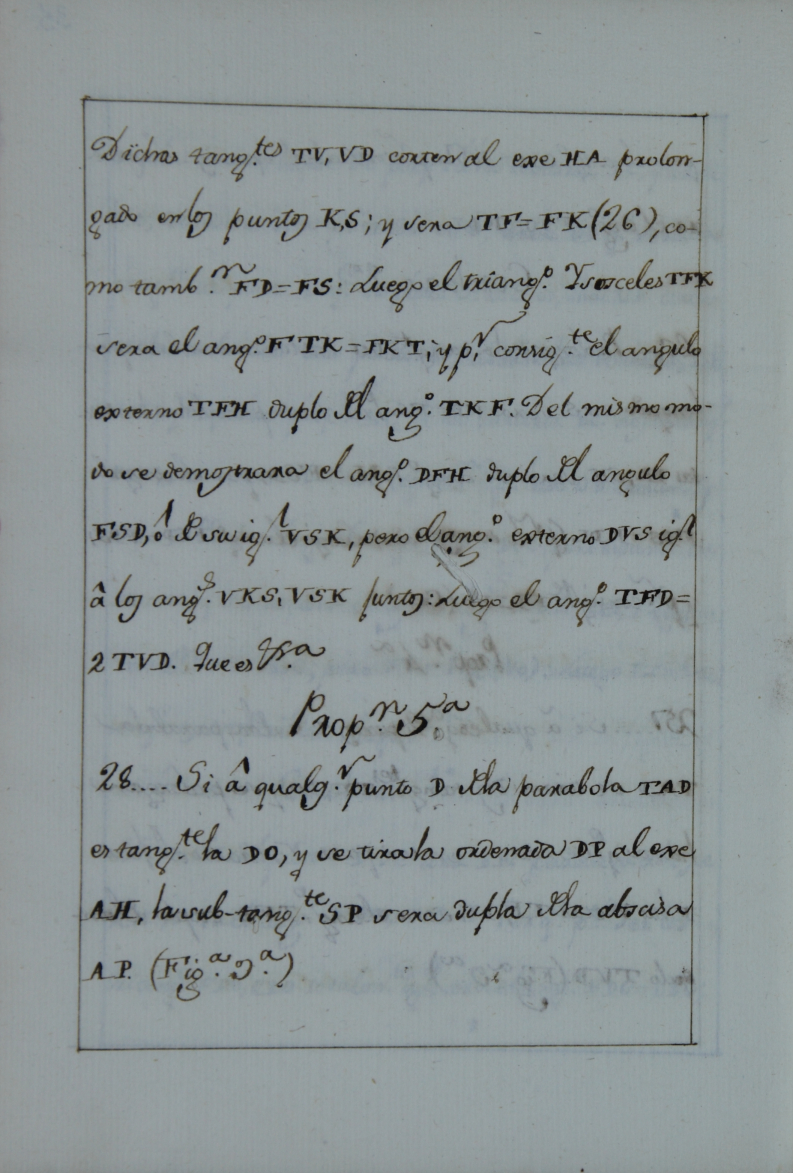 Dichas tang.tes TV, VD corten al exe HA prolon-
gado en los puntos K,S; y sera TF=FK(26), co-
mo tamb.n FD=FS: Luego el triang.o Ysosceles TFK
sera el ang.o FTK=FKT; y p.r consig.te el angulo
externo TFH duplo del ang.o TKF. Del mismo mo-
do se demostrara el ang.o DFH duplo del angulo
FSD, ó de su ig.l VSK, pero el ang.o externo DVS ig.l
â los ang.s VKS, VSK juntos: Luego el ang.o TFD=
2 TVD. Que es
Prop.n 5.a
28.... Si â qualq.r punto D dela parabola TAD
es tang.te la DO, y se tira la ordenada DP al exe
AH, la sub-tang.te SP sera dupla dela abscisa
AP. (Fig.a 9.a)